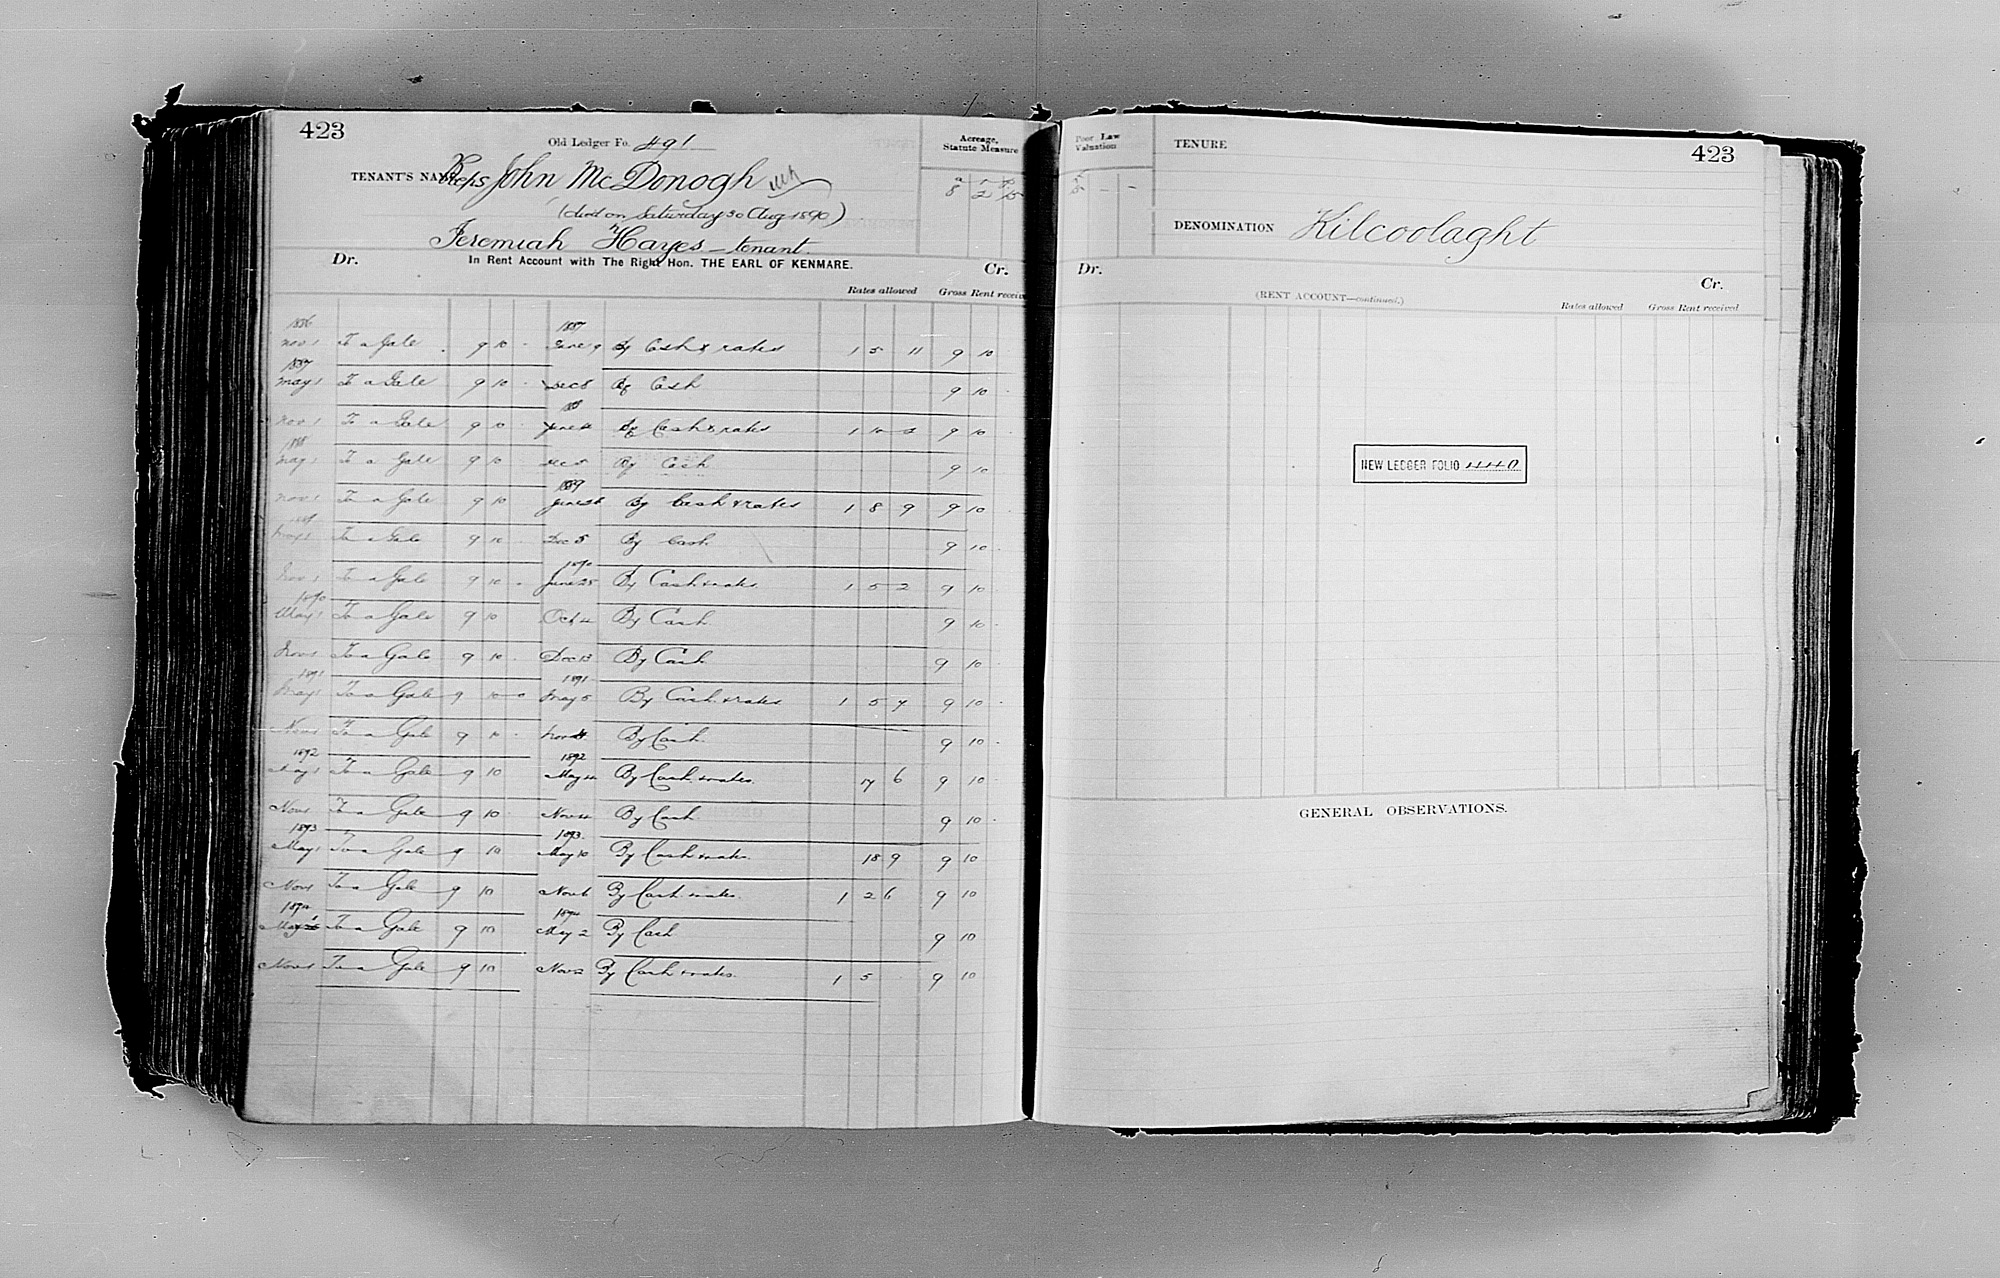 423
Old Ledger Fo. 491
TENANT'S NAME Reps John McDonogh
(died on Saturday 30 Aug 1890)
Jeremiah Hayes - tenant.
Acreage, Statute Measure
a r p
8 2 15
In Rent Account with The Right Hon. THE EARL OF KENMARE.
Dr. Cr.
Rates allowed Gross Rent received
1886 1887
Nov 1 To a Gale 9 10 - June 9 By Cash & rates 1 5 11 9 10
1887
May 1 To a Gale 9 10 - Dec 8 By Cash 9 10 -
1888
Nov 1 To a Gale 9 10 - June By Cash & rates 1 10 9 10
1888
May 1 To a Gale 9 10 Dec By Cash 9 10
1889
Nov 1 To a Gale 9 10 June By Cash & rates 1 8 9 9 10
1889
May 1 To a Gale 9 10 - Dec 5 By Cash 9 10 -
1890
Nov 1 To a Gale 9 10 - June 25 By Cash & rates 1 5 2 9 10
1890
May 1 To a Gale 9 10 Oct 4 By Cash 9 10 -
Nov 1 To a Gale 9 10 - Dec 13 By Cash 9 10
1891 1891
May 1 To a Gale 9 10 - May 5 By Cash & rates 1 5 7 9 10 -
Nov 1 To a Gale 9 10 - Nov By Cash 9 10 -
1892 1892
May 1 To a Gale 9 10 May By Cash & rates. 17 6 9 10 -
Nov 1 To a Gale 9 10 Nov 4 By Cash 9 10 -
1893 1893
May 1 To a Gale 9 10 May 10 By Cash & rates. 18 9 9 10
Nov 1 To a Gale 9 10 Nov 6 By Cash & rates. 1 2 6 9 10
1894 1894
May 1 To a Gale 9 10 May 2 By Cash 9 10
Nov 1 To a Gale 9 10 Nov 2 By Cash & rates. 1 5 9 10
Poor Law Valuation
TENURE
423
DENOMINATION Kilcoolaght
Dr. Cr.
(RENT ACCOUNT—continued.)
Rates allowed Gross Rent received
NEW LEDGER FOLIO 440
GENERAL OBSERVATIONS.